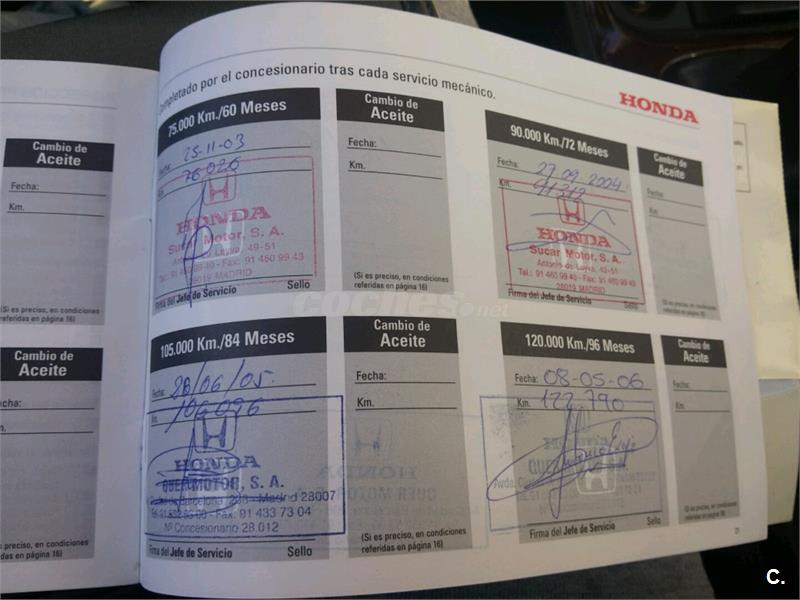 Completado por el concesionario tras cada servicio mecánico.
HONDA
Cambio de
Aceite
Fecha:
Km.
(Si es preciso, en condiciones
referidas en página 16)
75.000 Km./60 Meses
Fecha: 25-11-03
Km. 76026
HONDA
Sucar Motor, S. A.
Antonio de Leyva, 49-51
Tel.: 91 460 99 49 - Fax: 91 460 99 43
28019 MADRID
Firma del Jefe de Servicio Sello
Cambio de
Aceite
Fecha:
Km.
(Si es preciso, en condiciones
referidas en página 16)
90.000 Km./72 Meses
Fecha: 27.09.2004
Km. 91312
HONDA
Sucar Motor, S. A.
Antonio de Leyva, 49-51
Tel.: 91 460 99 49 - Fax: 91 460 99 43
28019 MADRID
Firma del Jefe de Servicio Sello
Cambio de
Aceite
Fecha:
Km.
(Si es preciso, en condiciones
referidas en página 16)
coches.net
Cambio de
Aceite
cha:
preciso, en condiciones
eridas en página 16)
105.000 Km./84 Meses
Fecha: 28/06/05.
Km. 106096
HONDA
QUER MOTOR, S. A.
de Barcelona, - Madrid 28007
Fax: 91 433 73 04
Nº Concesionario 28.012
Firma del Jefe de Servicio Sello
Cambio de
Aceite
Fecha:
Km.
HONDA
QUER MOTOR
(Si es preciso, en condiciones
referidas en página 16)
120.000 Km./96 Meses
Fecha: 08-05-06
Km. 122.790
QUER
Firma del Jefe de Servicio Sello
Cambio de
Aceite
Fecha:
Km.
(Si es preciso, en condiciones
referidas en página 16)
21
C.